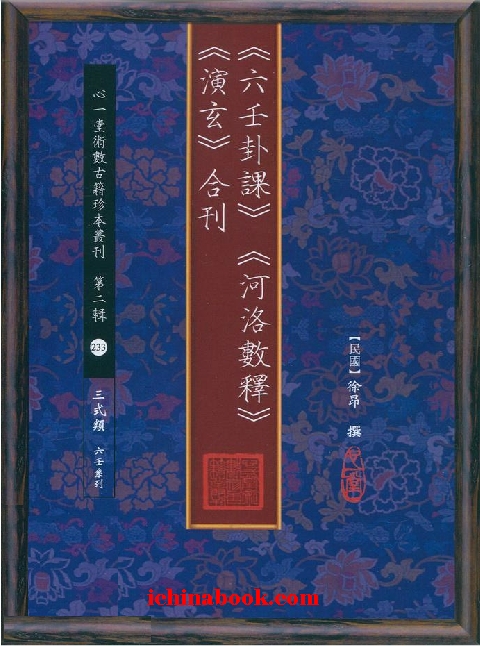 《六壬卦課》《河洛數釋》
《演玄》合刊
【民國】徐昂 撰
心一堂術數古籍珍本叢刊 第二輯 233
三式類 六壬系列
ichinabook.com